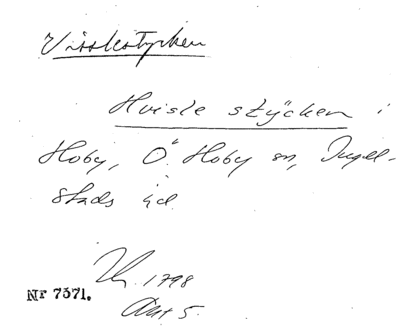 Visslestycken
Hvisle stÿcken i
Hoby, Ö. Hoby sn, Ingel-
stads hd
1798
Nr 7371.
Akt 5.